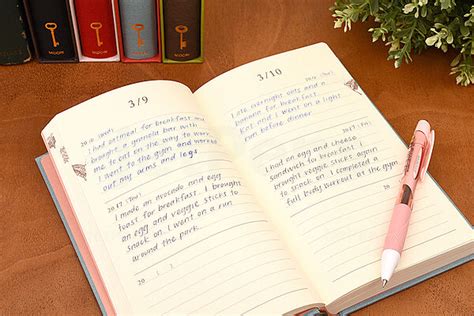 3/9
2016 (Wed)
I had oatmeal for breakfast and
brought a granola bar with
me to eat on the way to work
I went to the gym and worked
out my arms and legs
2017 (Thu)
I made an avocado and egg
toast for breakfast. I brought
an egg and veggie sticks to
snack on. I went on a run
around the park.
20 ( )
3/10
I ate overnight oats and a
banana for breakfast.
and I went on a light
run before dinner
2017 (Fri)
I had an egg and cheese
sandwich for breakfast. I
brought veggie sticks again
to snack on. I completed a
full body workout at the gym